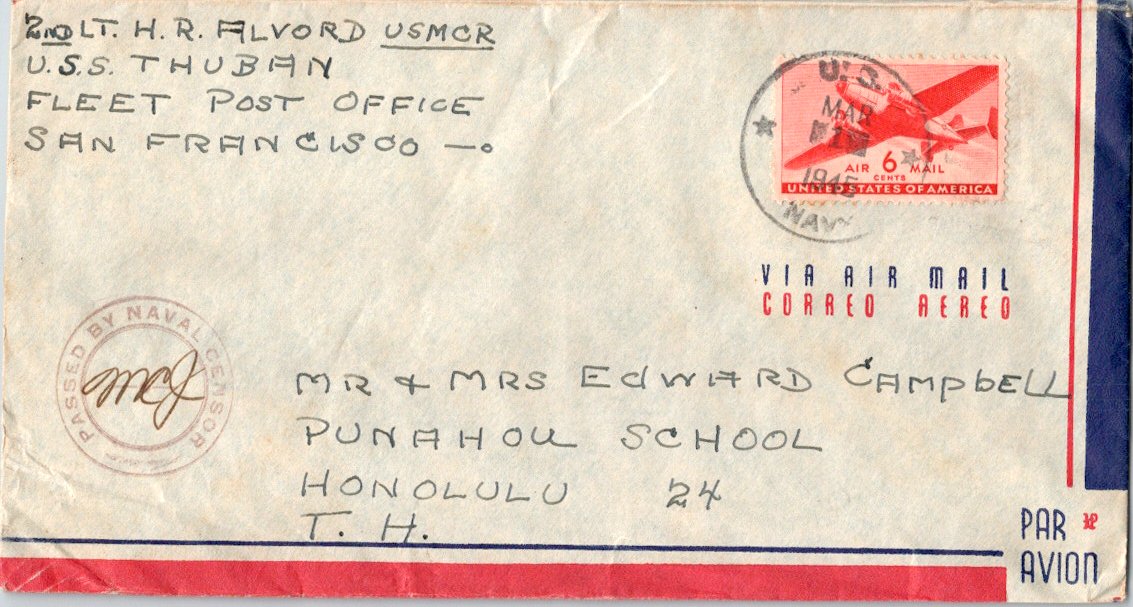 2ND LT. H. R. ALVORD USMCR
U.S.S. THUBAN
FLEET POST OFFICE
SAN FRANCISCO —
U.S.
MAR
1
1945
NAVY
AIR 6 MAIL
CENTS
UNITED STATES OF AMERICA
VIA AIR MAIL
CORREO AEREO
PASSED BY NAVAL CENSOR
MR & MRS EDWARD CAMPBELL
PUNAHOU SCHOOL
HONOLULU 24
T. H.
PAR
AVION